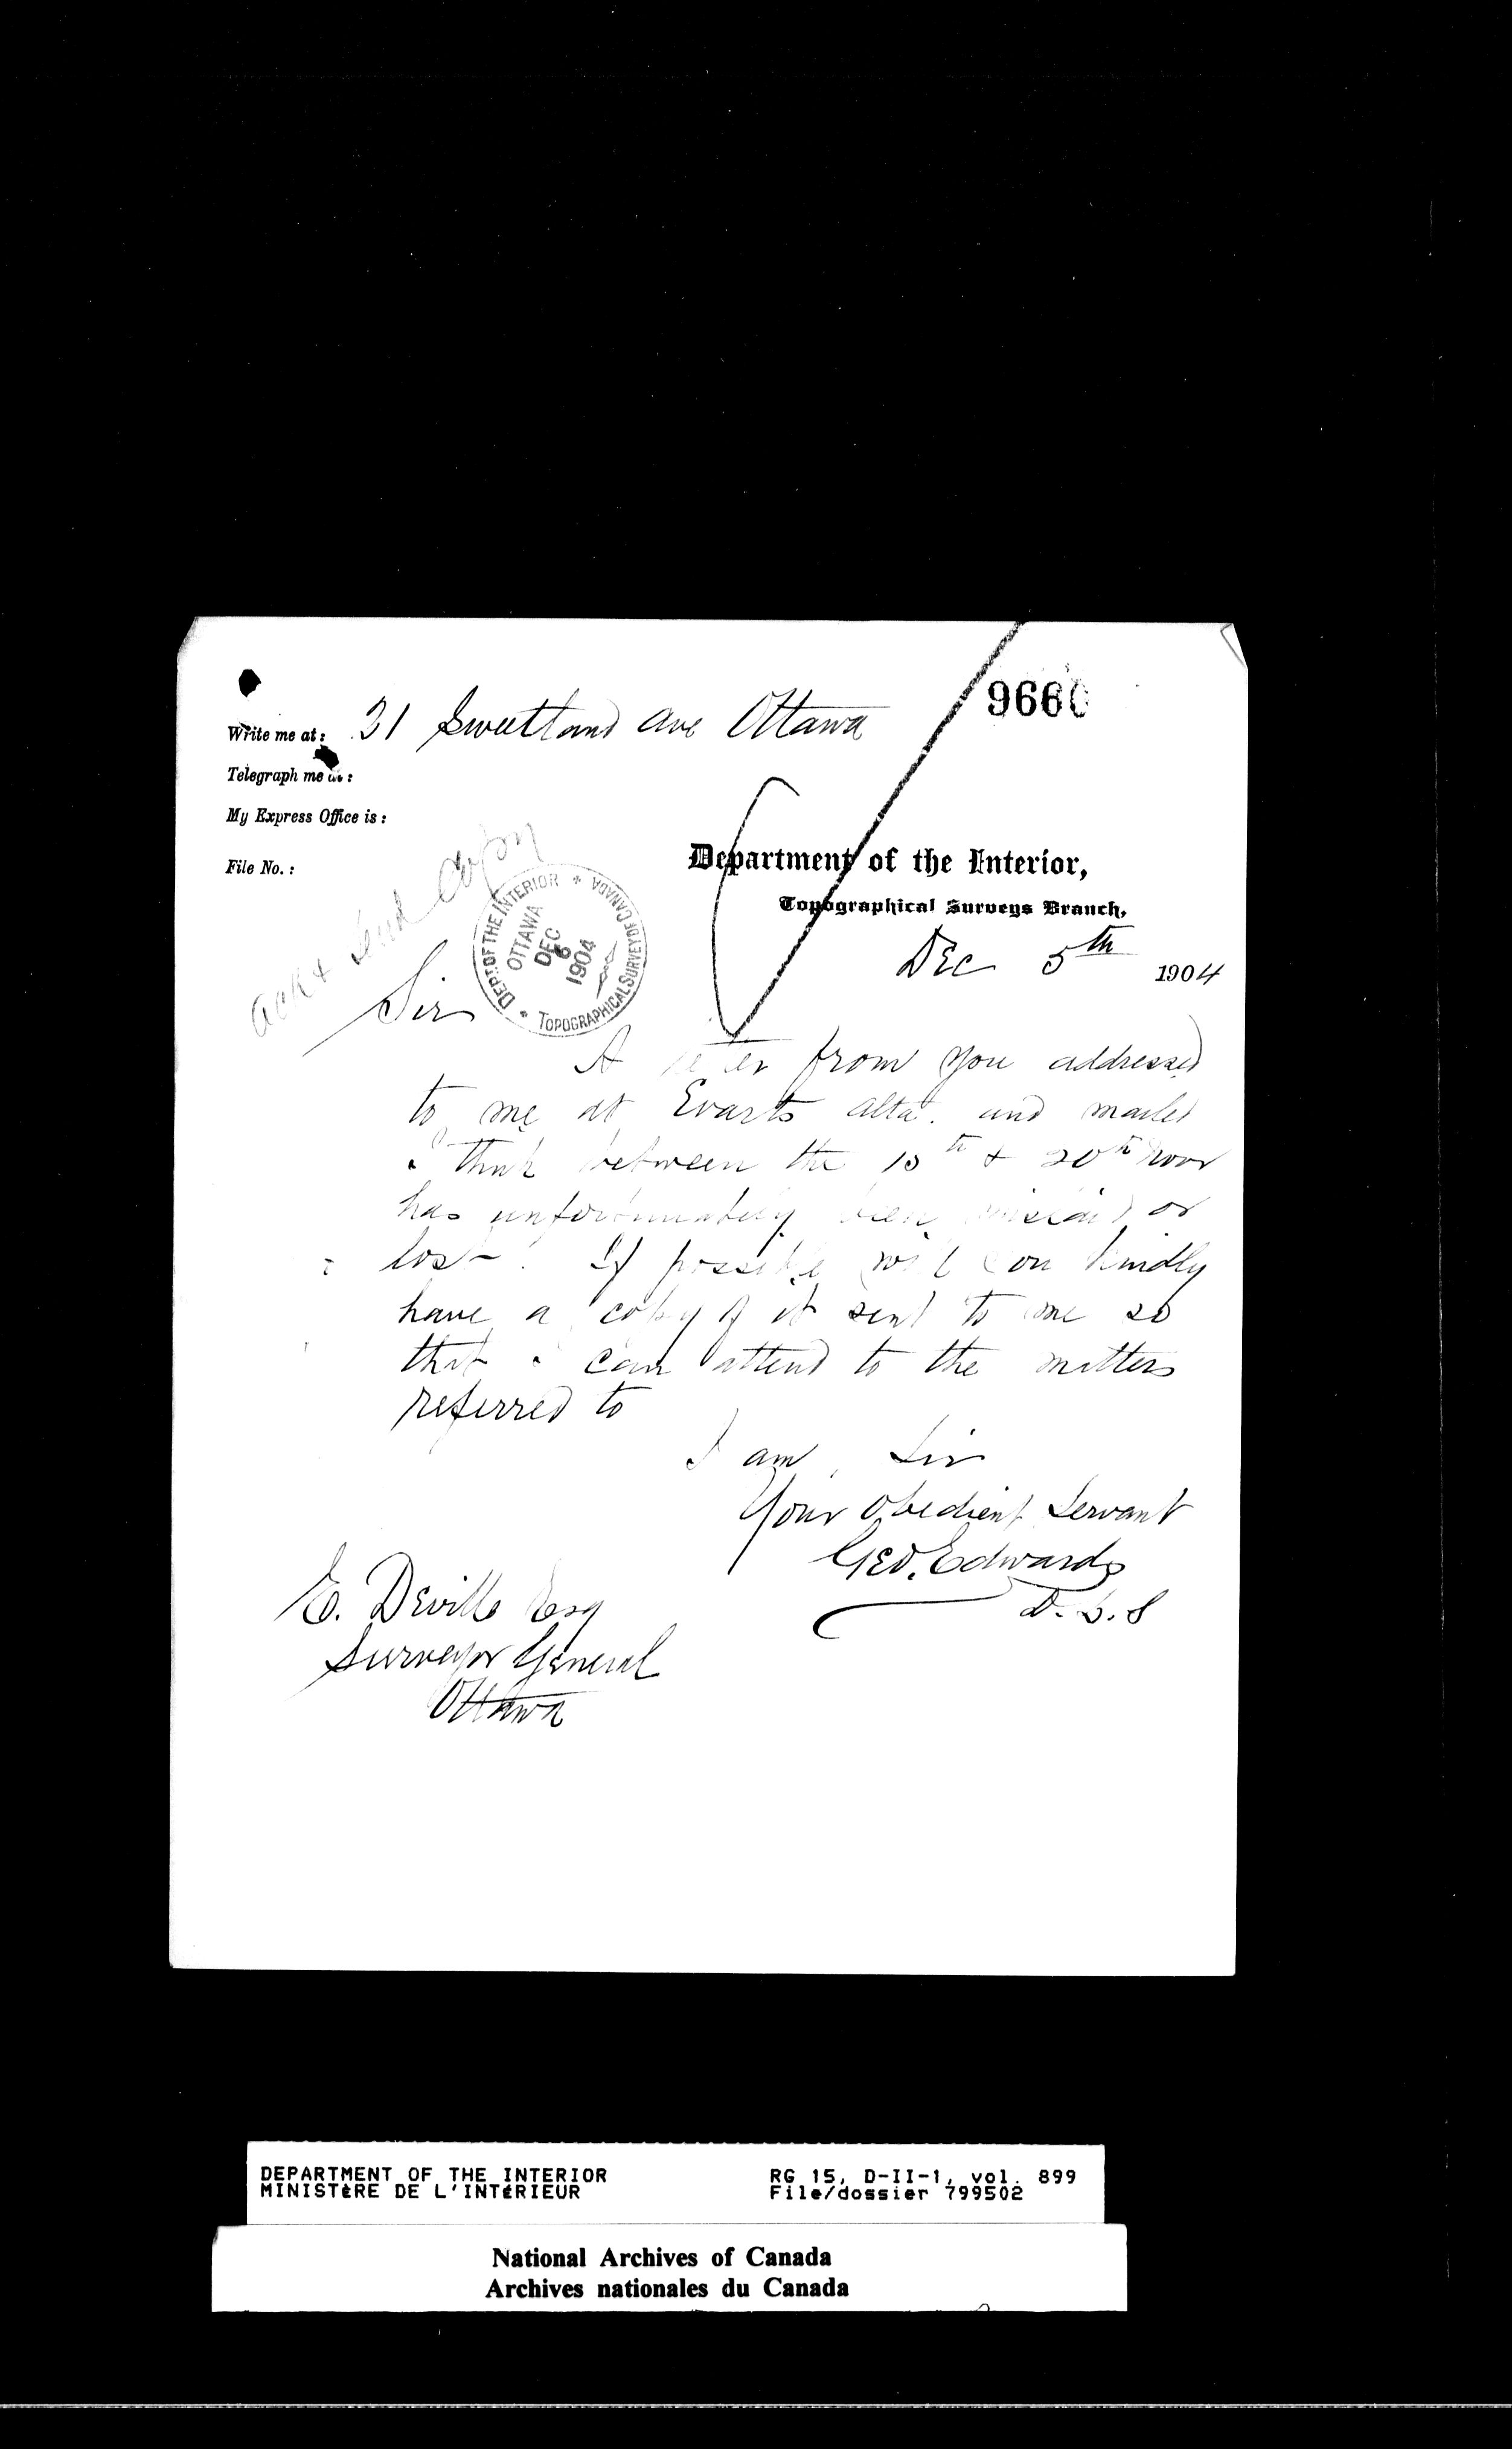 9660
Write me at: 31 Sweetland Ave Ottawa
Telegraph me at:
My Express Office is:
File No.:
Ack & send copy
Department of the Interior,
Topographical Surveys Branch,
DEPT. OF THE INTERIOR * TOPOGRAPHICAL SURVEY OF CANADA *
OTTAWA
DEC
6
1904
Dec 5th 1904
Sir
A letter from you addressed
to me at Evarts Alta. and mailed
I think between the 15th & 20th Novr
has unfortunately been mislaid or
lost. If possible will you kindly
have a copy of it sent to me so
that I can attend to the matters
referred to
I am, Sir
Your obedient servant
Geo. Edwards
D. L. S
E. Deville Esq
Surveyor General
Ottawa
DEPARTMENT OF THE INTERIOR RG 15, D-II-1, vol. 899
MINISTÈRE DE L'INTÉRIEUR File/dossier 799502
National Archives of Canada
Archives nationales du Canada